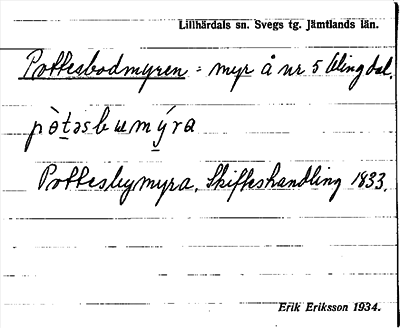 Lillhärdals sn. Svegs tg. Jämtlands län.
Pottesbodmyren = myr å nr 5 Olingdal.
pòt̲əsbu̲mýra
Pottesbymyra, Skifteshandling 1833.
Erik Eriksson 1934.